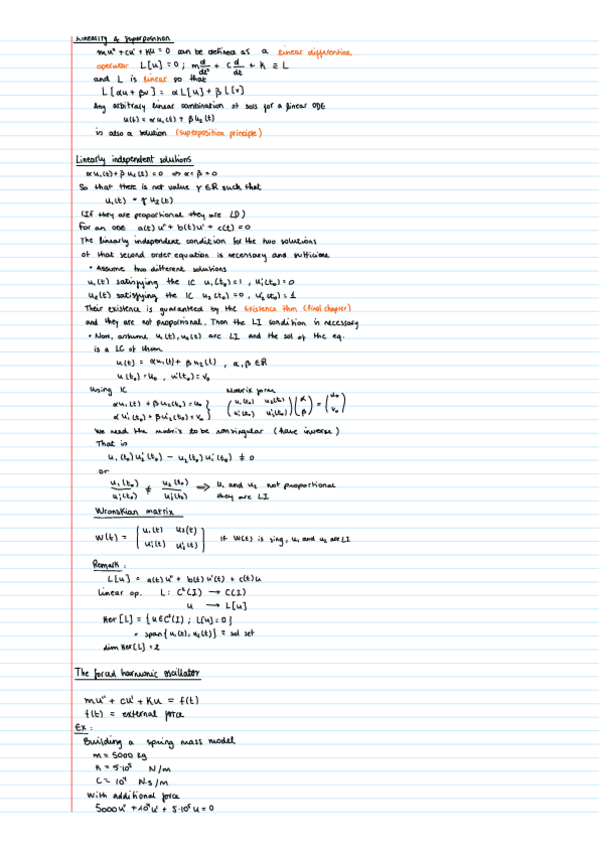 Linearity & superposition
mu'' + cu' + Ku = 0 can be defined as a linear differential
operator L[u] = 0 ; m d/dt² + c d/dt + K ≡ L
and L is linear so that
L[αu + βv] = αL[u] + βL[v]
Any arbitraly linear combination of sols for a linear ODE
u(t) = αu₁(t) + βu₂(t)
is also a solution (superposition principle)
Linearly independent solutions
αu₁(t) + βu₂(t) = 0 ⇒ α = β = 0
So that there is not value γ ∈ ℝ such that
u₁(t) = γu₂(t)
(If they are proportional they are LD)
For an ODE a(t)u'' + b(t)u' + c(t) = 0
The linearly independent condition for the two solutions
of that second order equation is necessary and sufficiene
• Assume two different solutions
u₁(t) satisfying the IC u₁(t₀) = 1 , u₁'(t₀) = 0
u₂(t) satisfying the IC u₂(t₀) = 0 , u₂'(t₀) = 1
Their existence is guaranteed by the existence thm (final chapter)
and they are not proportional. Then the LI condition is necessary
• Now, assume u₁(t), u₂(t) are LI and the sol of the eq.
is a LC of them
u(t) = αu₁(t) + βu₂(t) , α, β ∈ ℝ
u(t₀) = u₀ , u'(t₀) = v₀
Using IC Matrix form
αu₁(t₀) + βu₂(t₀) = u₀ } ( u₁(t₀) u₂(t₀) ) ( α ) = ( u₀ )
αu₁'(t₀) + βu₂'(t₀) = v₀ } ( u₁'(t₀) u₂'(t₀) ) ( β ) ( v₀ )
We need the matrix to be nonsingular (have inverse)
That is
u₁(t₀)u₂'(t₀) - u₂(t₀)u₁'(t₀) ≠ 0
or
u₁(t₀)/u₁'(t₀) ≠ u₂(t₀)/u₂'(t₀) ⟹ u₁ and u₂ not proportional
they are LI
Wronskian matrix
W(t) = ( u₁(t) u₂(t) ) If W(t) is sing, u₁ and u₂ are LI
( u₁'(t) u₂'(t) )
Remark :
L[u] = a(t)u'' + b(t)u'(t) + c(t)u
linear op. L : C²(I) → C(I)
u → L[u]
Ker[L] = { u ∈ C²(I) ; L[u] = 0 }
= span{ u₁(t), u₂(t) } ≡ sol set
dim Ker(L) = 2
The forced harmonic oscillator
mu'' + cu' + Ku = f(t)
f(t) = external force
Ex :
Building a spring mass model
m = 5000 kg
K = 5·10⁵ N/m
C = 10⁴ N·s/m
With additional force
5000u'' + 10⁴u' + 5·10⁵u = 0